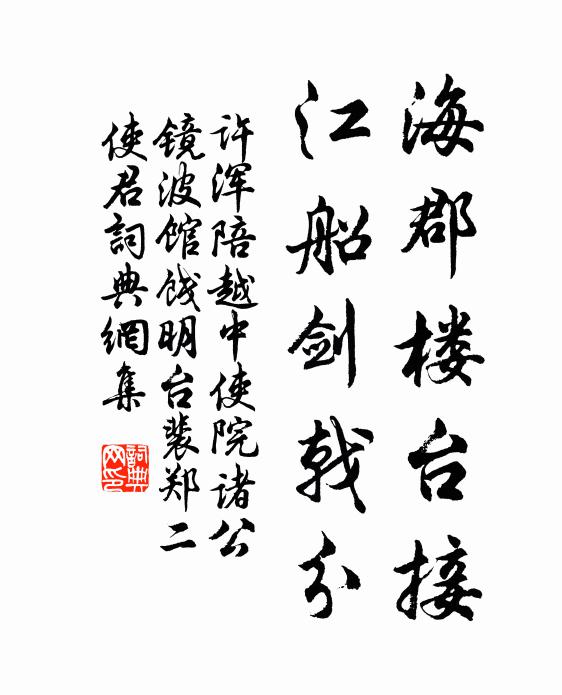 海郡楼台接
江船剑戟分
许浑陪越中使院诸公
镜波馆饯明台裴郑二
使君詞典網集
詞典网印